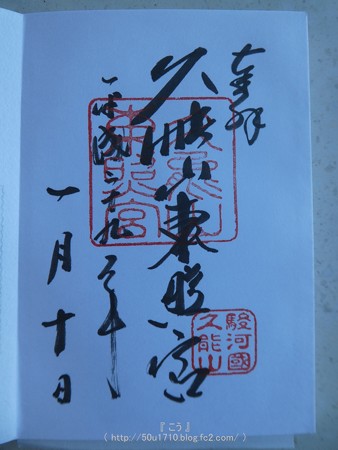 奉拝
久能山東照宮
平成二十九年
一月十日
久能山
東照宮
駿河國
久能山
『こう』
( http://50u1710.blog.fc2.com/ )